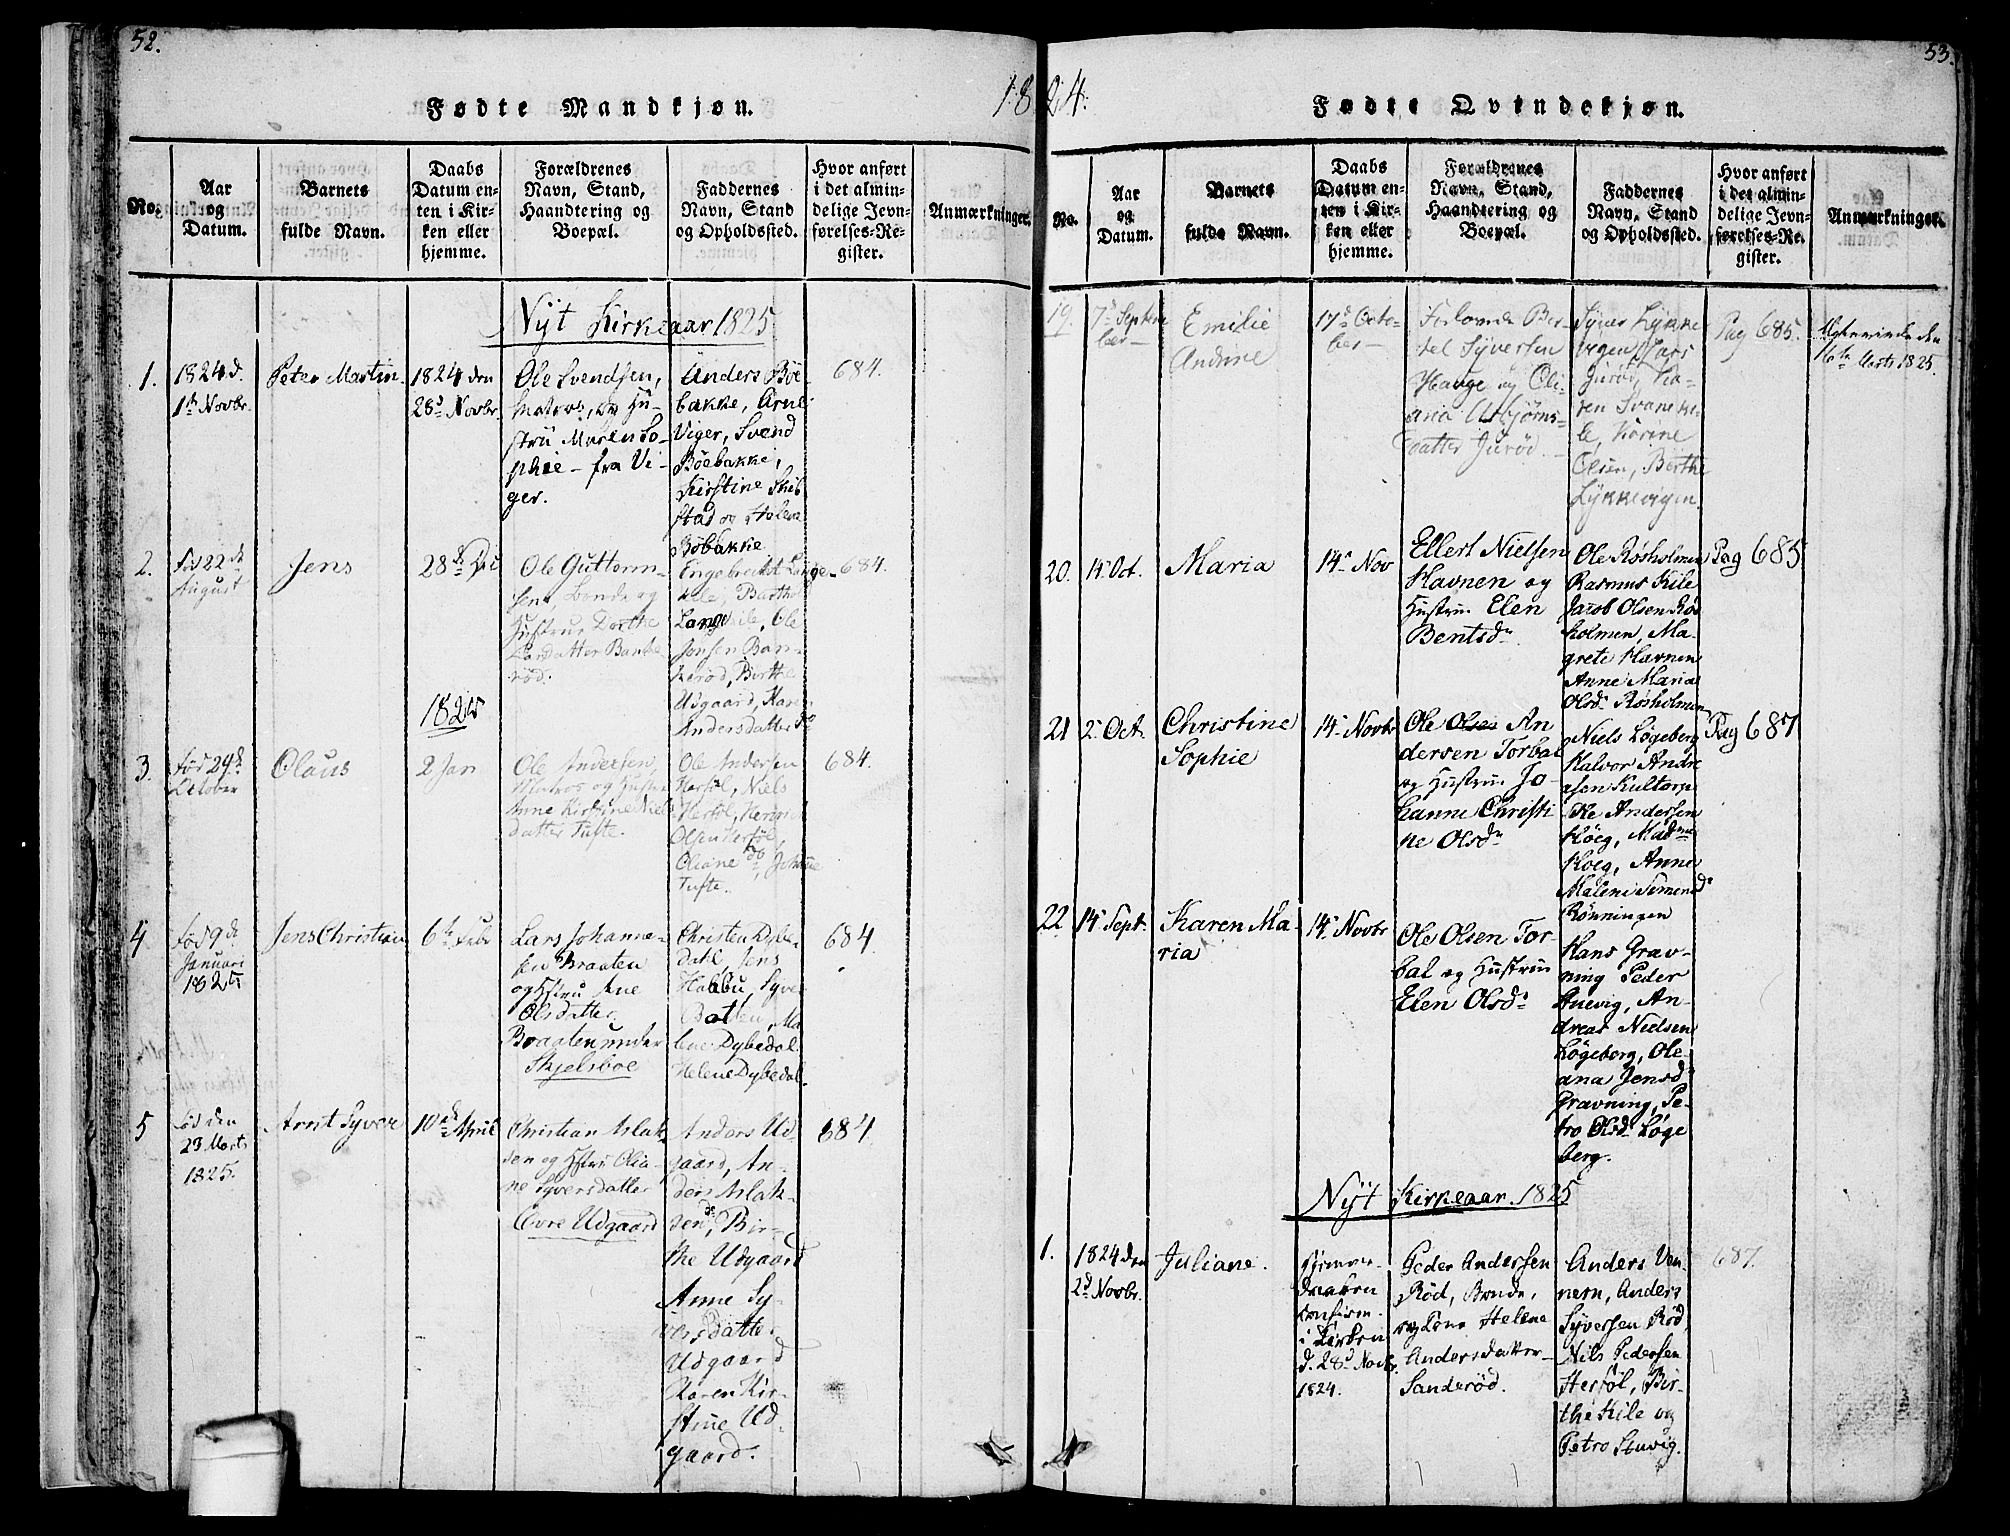 52.
1824.
Fødte Mandkjøn.
No.
Aar
og
Datum.
Barnets
fulde Navn.
Daabs
Datum en-
ten i Kir-
ken eller
hjemme.
Forældrenes
Navn, Stand,
Haandtering og
Boepæl.
Faddernes
Navn, Stand
og Opholdssted.
Hvor anført
i det almin-
delige Jevn-
førelses-Re-
gister.
Anmærkninger.
Nyt Kirkeaar 1825
1.
1824 d.
1th Novbr.
Peter Martin
1824 den
28d Novbr.
Ole Svendsen,
Matros, og Hu-
stru Maren So-
phie - fra Vi-
ger.
Anders Böe-
bakke, Arne
Viger, Svend
Böebakke,
Kirstine Skib
stad og Helene
Böbakke
684.
2.
Fød 22 de
August
Jens
28de Dec
Ole Guttorm-
sens, Bonde og
Hustrue Dorthe
Larsdatter Banke
rød.
Engebreckt Lange-
kile, Barthol
Langekile, Ole
Jonsen Ban-
kerød, Birthe
Udgaard, Karen
Andersdatter do
684.
1825
3
Fød 29de
October
Olaus
2 Jan
Ole Andersen
Matros og Hustru
Anne Kirstine Niels
datter Tufte.
Ole Andersen
Herföl, Niels
Herföl,
Olsen Herföl
Oliane do, Johanne
Tufte.
684.
4
Fød 9 de
Januari
1825
Jens Christian
6te Febr
Lars Johanne-
sen Braaten
og Hstru Ane
Olsdatter
Braaten under
Skjelsboe
Christen Dybe-
dahl Jens
Habbu, Syver
Dotten, Ma
lene Dybedal
Helene Dybedal.
684
5
Fød den
29 Marts
1825.
Arnt Syver
10de April
Christian Aslak-
sen og Hstru Olia-
ne Syversdatter
Øvre Udgaard
Anders Ud-
gaard, An-
ders Aslak-
sen do, Bir-
the Udgaard
Anne Sy-
versdatter
Udgaard
Karen Kir-
stine Ud-
gaard.
684.
53.
Fødte Qvindekjøn.
No.
Aar
og
Datum.
Barnets
fulde Navn.
Daabs
Datum en-
ten i Kir-
ken eller
hjemme.
Forældrenes
Navn, Stand,
Haandtering og
Boepæl.
Faddernes
Navn, Stand
og Opholdssted.
Hvor anført
i det almin-
delige Jevn-
førelses-Re-
gister.
Anmærkninger.
19.
7de Septem
ber
Emilie
Andrine
17de Octo-
ber
Forlovede Ber-
tel Syversen
Hauge og Oli-
aria Asbjørns-
datter Jurød.
Syver Lykke
vigen, Lars
Jurød, Ka-
ren Svaneki-
le, Karine
Olsen, Berthe
Lykkevigen
Pag 685.
den
16te Marts 1825.
20.
1ste Oct.
Maria
14de Nov
Ellert Nielsen
Havnen og
Hustrue Elen
Bentsdr
Ole Røsholmen
Rasmus Kile
Jacob Olsen Røs
holmen, Ma-
grete Havnen
Anne Maria
Olsdr Røsholmen
Pag 685
21
2den Oct.
Christine
Sophie
14de Novbr
Ole Olsen An
dersen Torbal
og Hustrue Jo-
hanne Christi
ne Olsdr
Niels Løgeberg
Halvor Andre
asen Kultorp
Ole Andersen
Höeg, Madme
Höeg, Anne
Malene Simensdr
Rönningen
Pag 687
22
14de Sept.
Karen Ma-
ria
14de Novbr
Ole Olsen Tor-
bal og Hustrue
Elen Olsdr
Hans Grav-
ning Peder
Stuevig, An-
dreas Nielsen
Løgeberg, Ole-
ana Jensd
Gravning, Pe-
tro Olsdr Løge
berg.
Nyt Kirkeaar 1825
1.
1824 den
2d Novbr.
Juliane.
Hjemme-
confirm.
i Kirken
d. 28d Novbr.
1824.
Peder Andersen
Rød, Bonde,
og Kone Helene
Andersdatter
Sanderød.
Anders Ven-
nern, Anders
Syversen Rød,
Nils Pedersen
Herföl, Bir-
the Kile og
Petro Stuvig.
687.